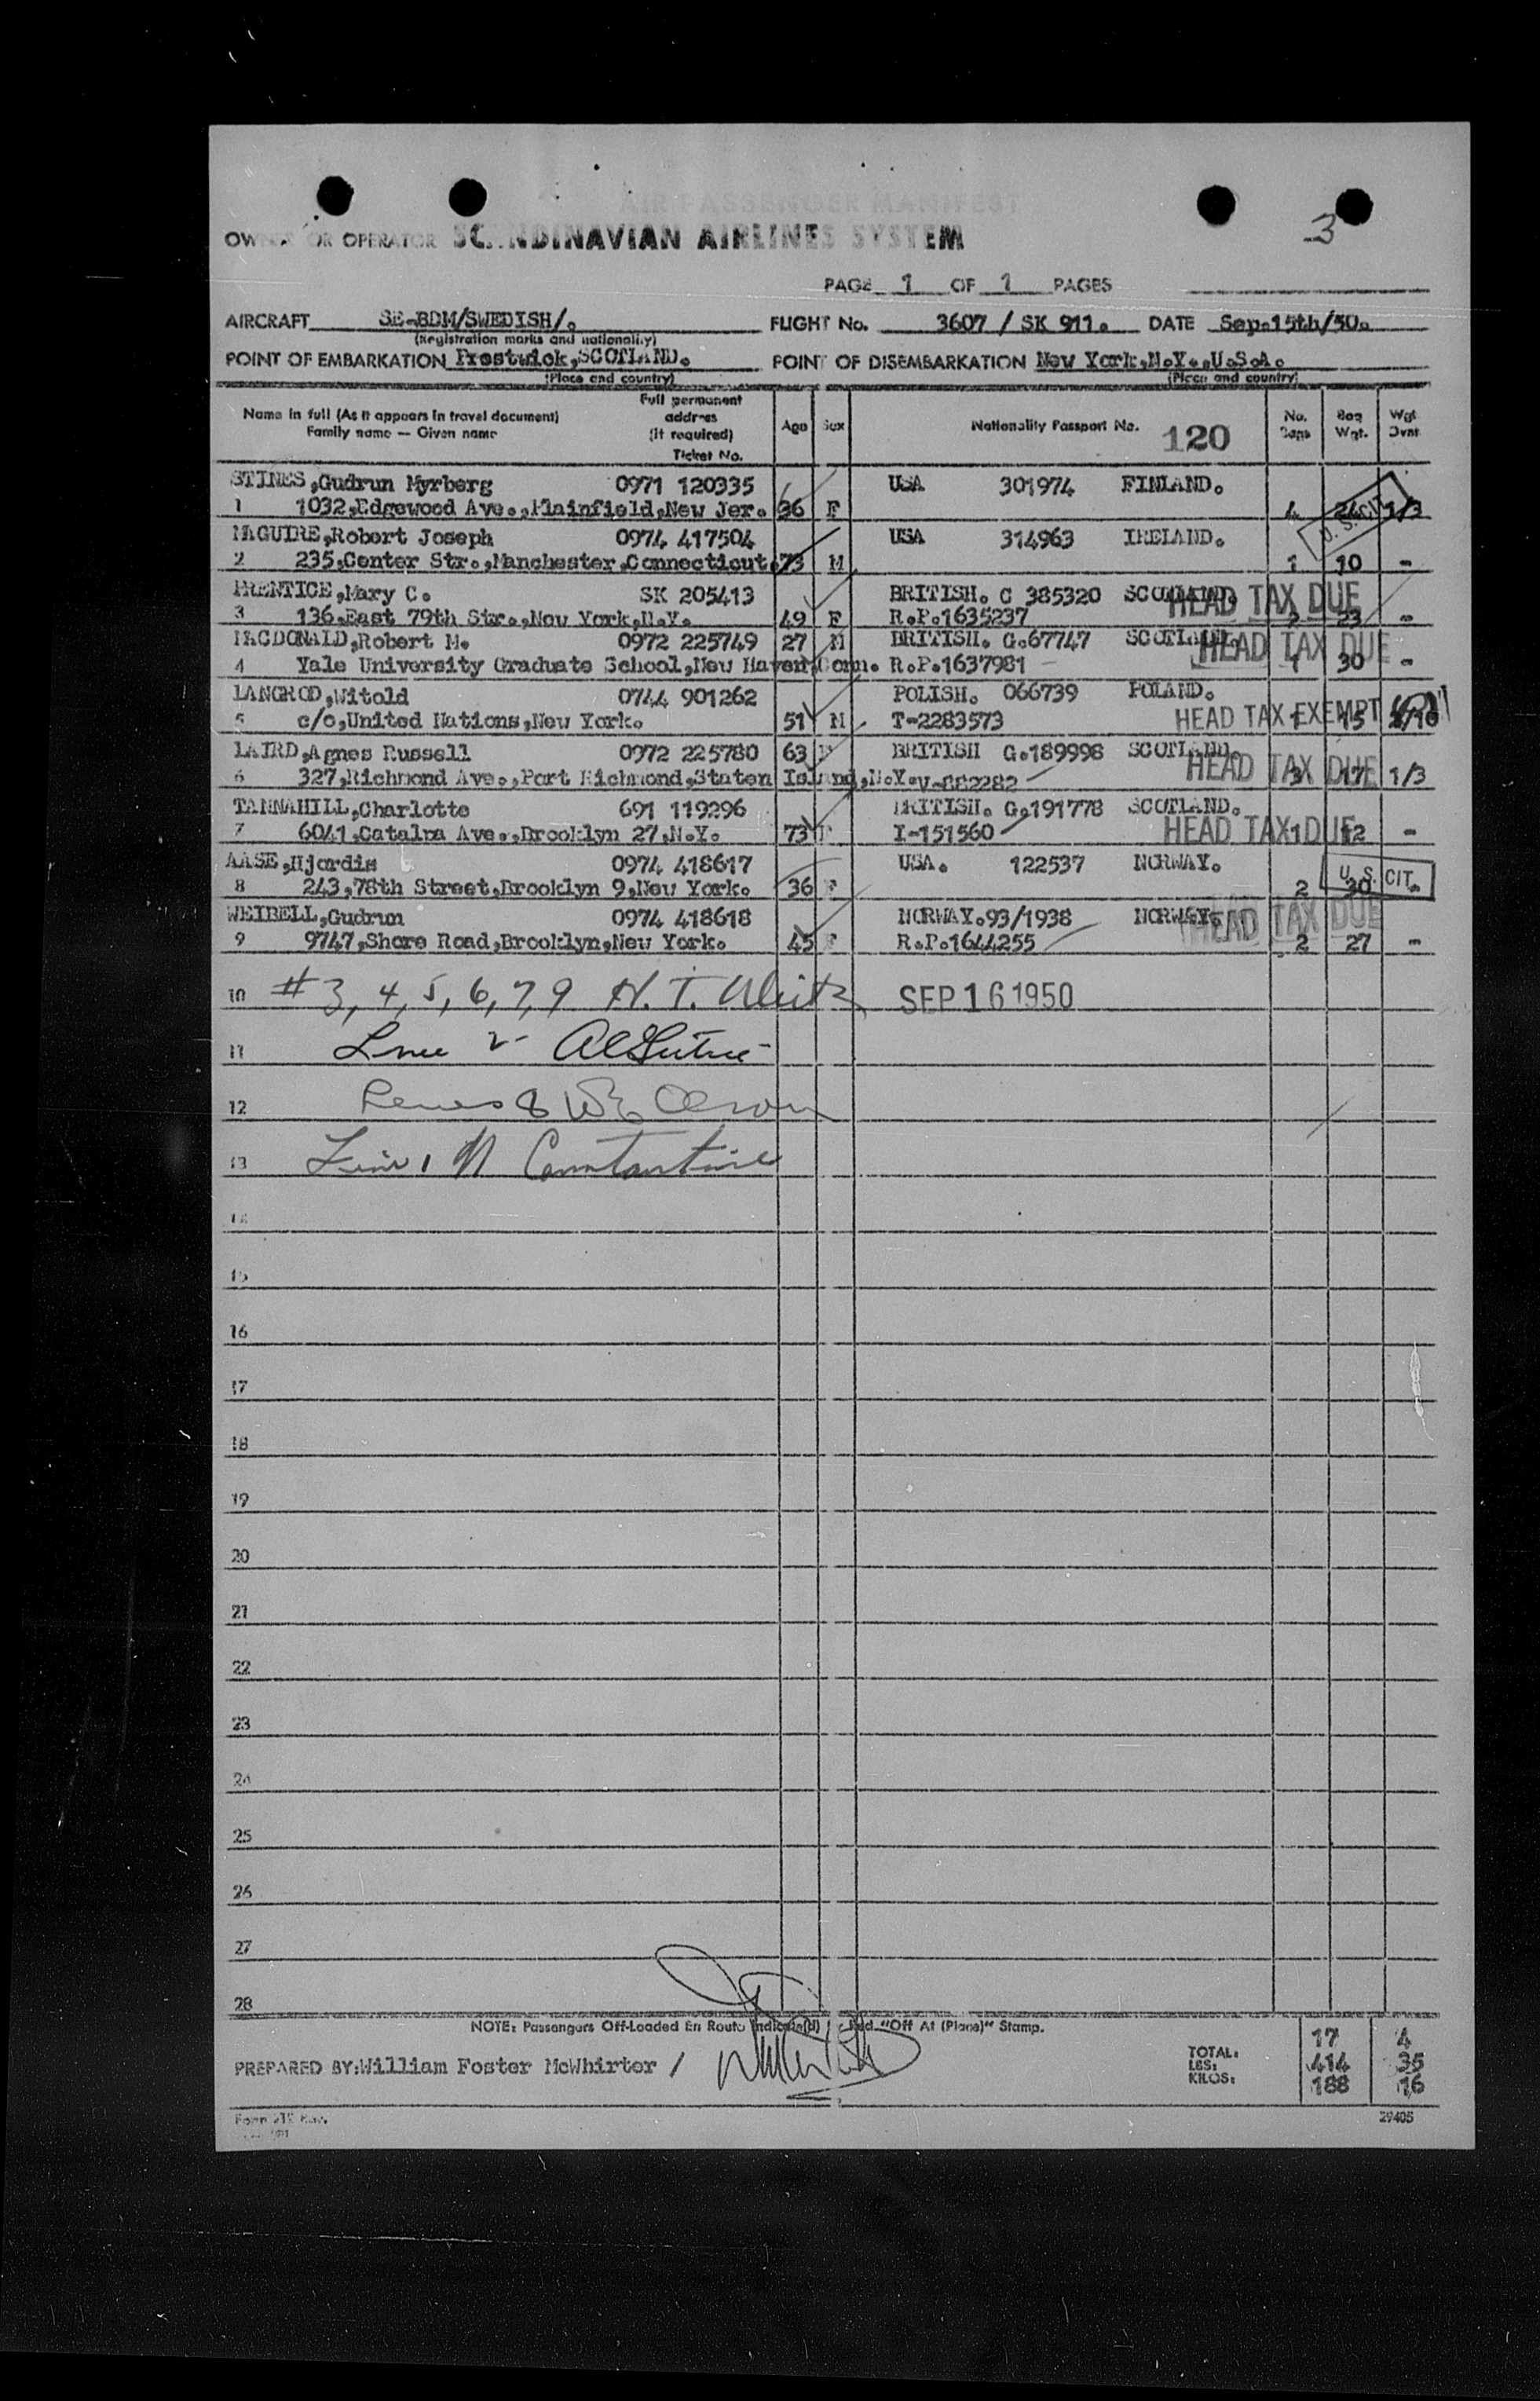 AIR PASSENGER MANIFEST
3
OR OPERATOR SCANDINAVIAN AIRLINES SYSTEM
PAGE 1 OF 1 PAGES
AIRCRAFT SE-BDM/SWEDISH/. FLIGHT No. 3607 / SK 911. DATE Sep.15th/50.
(Registration marks and nationality)
POINT OF EMBARKATION Prestwick,SCOTLAND. POINT OF DISEMBARKATION New York,N.Y.,U.S.A.
(Place and country) (Place and country)
Name in full (As it appears in travel document) Full permanent address (if required) Age Sex Nationality Passport No. 120 No. Bags Bag Wgt. Wgt Ovnt
Family name — Given name Ticket No.
STINES,Gudrun Myrberg 0971 120335 USA 301974 FINLAND.
1 1032,Edgewood Ave.,Plainfield,New Jer. 36 F 4 24 1/3
U. S. CIT.
MAGUIRE,Robert Joseph 0974 417504 USA 314963 IRELAND.
2 235,Center Str.,Manchester,Connecticut. 73 M 1 10 -
PRENTICE,Mary C. SK 205413 BRITISH. C 385320 SCOTLAND. HEAD TAX DUE
3 136,East 79th Str.,New York,N.Y. 49 F R.P.1635237 2 23 -
MACDONALD,Robert M. 0972 225749 27 M BRITISH. G.67747 SCOTLAND. HEAD TAX DUE
4 Yale University Graduate School,New Haven,Conn. R.P.1637981 1 30 -
LANGROD,Witold 0744 901262 POLISH. 066739 POLAND.
5 c/o,United Nations,New York. 51 M T-2283573 HEAD TAX EXEMPT 1 15
LAIRD,Agnes Russell 0972 225780 63 F BRITISH G.189998 SCOTLAND. HEAD TAX DUE
6 327,Richmond Ave.,Port Richmond,Staten Island,N.Y. V-882282 3 17 1/3
TANNAHILL,Charlotte 691 119296 BRITISH. G.191778 SCOTLAND.
7 6041,Catalpa Ave.,Brooklyn 27,N.Y. 73 F I-151560 HEAD TAX DUE 1 12 -
AASE,Hjordis 0974 418617 USA. 122537 NORWAY.
8 243,78th Street,Brooklyn 9,New York. 36 F 2 30 - U. S. CIT.
WEIBELL,Gudrun 0974 418618 NORWAY.93/1938 NORWAY. HEAD TAX DUE
9 9747,Shore Road,Brooklyn,New York. 45 F R.P.1644255 2 27 -
10 #3, 4, 5, 6, 7, 9 H. T. SEP 16 1950
11
12
13 Constantine
14
15
16
17
18
19
20
21
22
23
24
25
26
27
28
NOTE: Passengers Off-Loaded En Route "Off At (Place)" Stamp.
PREPARED BY:William Foster McWhirter /
TOTAL: 17 4
LBS: 414 35
KILOS: 188 16
29405